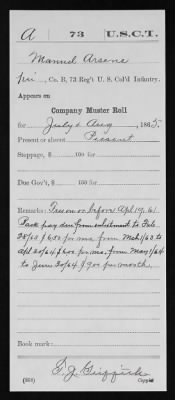 A | 73 | U.S.C.T.
Manuel Arsene
Co. B, 73 Reg't U. S. Col'd Infantry.
Appears on
Company Muster Roll
for July & Aug, 1865.
Present or absent Present
Stoppage, $ 100 for
Due Gov't, $ 100 for
Remarks: Free on or before Apl 19, 61
Back pay due from enlistment to Feb
28/63 $ per mo. from Mch 1/63 to
Apl 30/64 $ per mo. from May 1/64
to June 30/64 $9.00 per month
Book mark:
(358) Copyist.